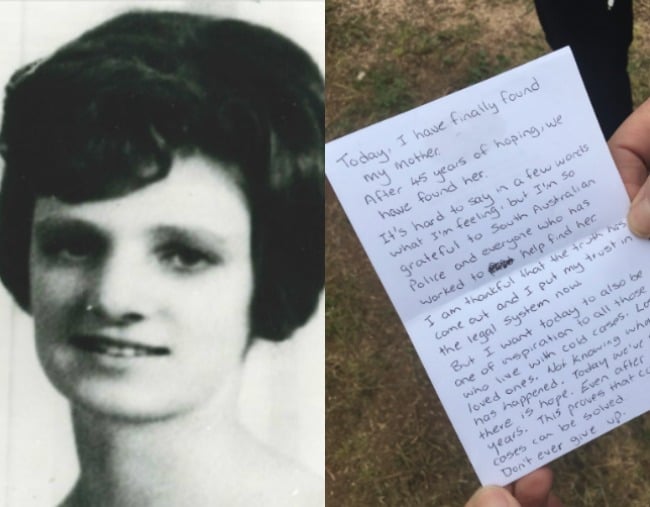 Today, I have finally found
my mother.
After 45 years of hoping, we
have found her.
It's hard to say in a few words
what I'm feeling, but I'm so
grateful to South Australian
Police and everyone who has
worked to help find her.
I am thankful that the truth has
come out and I put my trust in
the legal system now.
But I want today to also be
one of inspiration to all those
who live with cold cases.
loved ones. Not knowing
has happened. Today we've
there is hope. Even after
years. This proves that
cases can be solved.
Don't ever give up.